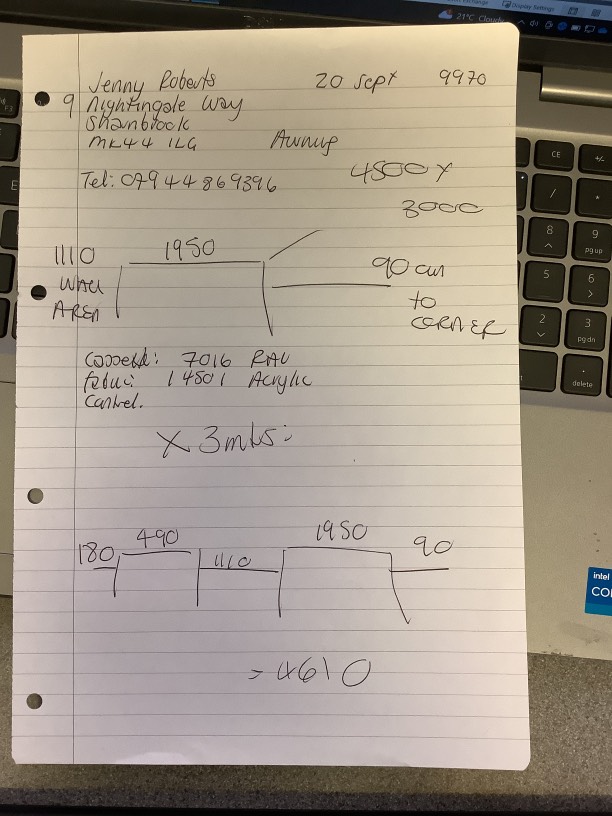 Jenny Roberts 20 Sept 9970
9 Nightingale Way
Sharnbrook
MK44 1LG Awning
4500 x
Tel: 07944869396
3000
1110 1950 90 cm
WALL to
AREA CORNER
7016 RAL
14501 Acrylic
x 3mts:
180 490 1110 1950 90
= 4610
21°C Cloudy
Display Settings
CE
+/-
/
*
8
9
pg up
5
6
2
3
pg dn
delete
intel